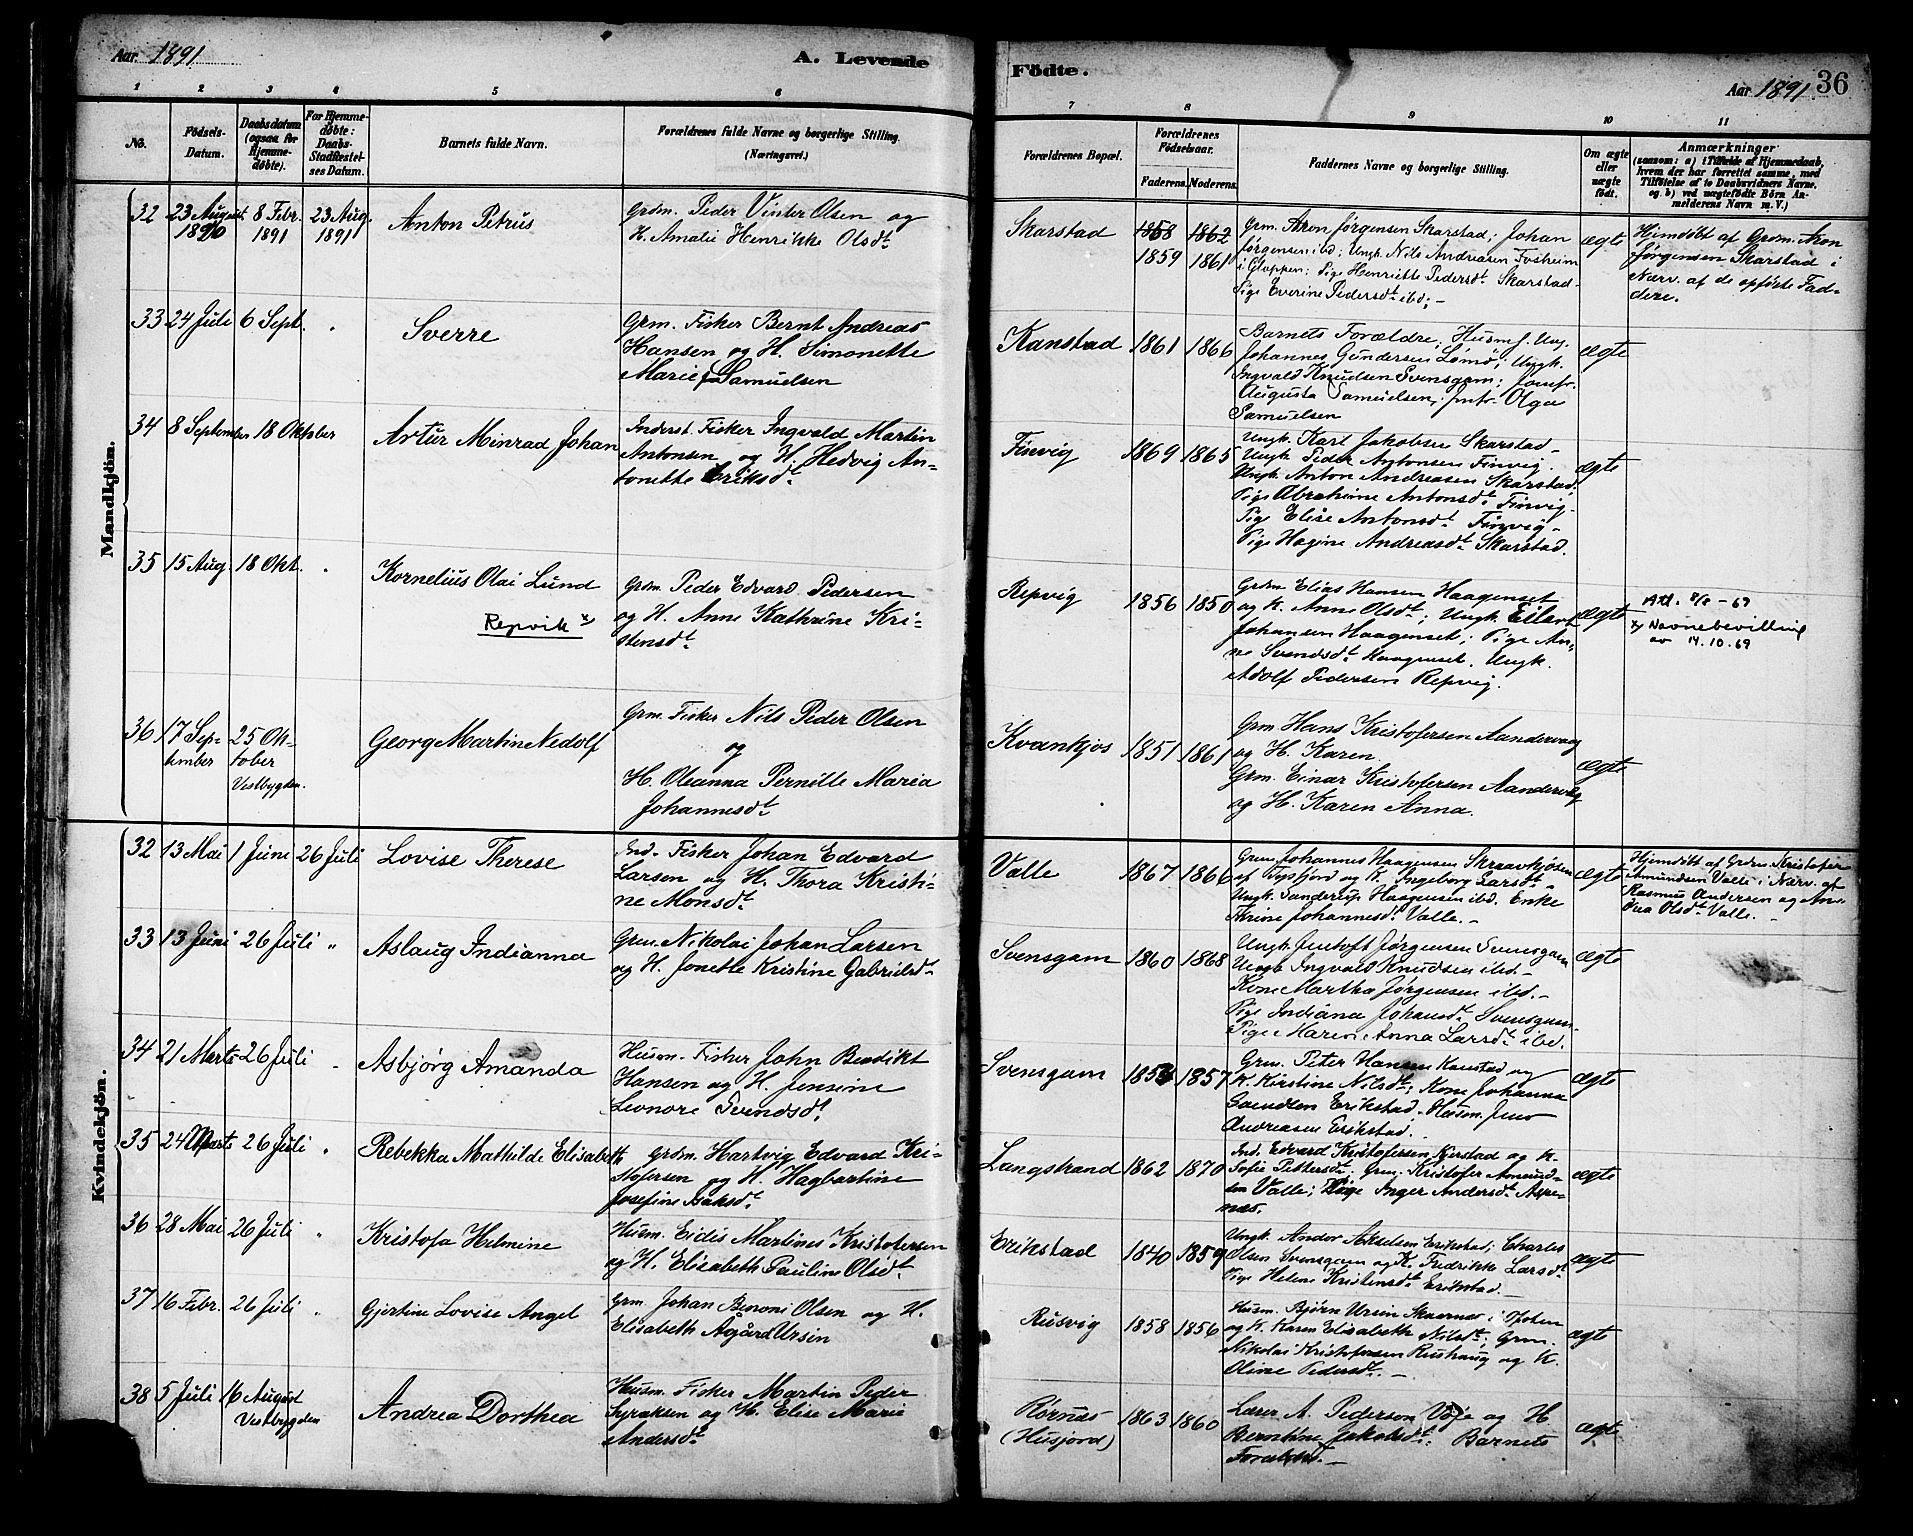 Aar 1891
A. Levende
Födte.
Aar 1891.
36
1 2 3 4 5 6 7 8 9 10 11
No.
Födsels-Datum.
Daabsdatum (ogsaa for Hjemmedöbte).
For Hjemmedöbte: Daabs-Stadfæstelses Datum.
Barnets fulde Navn.
Forældrenes fulde Navne og borgerlige Stilling. (Næringsvei.)
Forældrenes Bopæl.
Forældrenes Födselsaar.
Faderens. Moderens.
Faddernes Navne og borgerlige Stilling.
Om ægte eller uægte födt.
Anmærkninger
(saasom: a) i Tilfælde af Hjemmedaab,
hvem der har forrettet samme, med
Tilföielse af to Daabsvidners Navne,
og b) ved uægtefödte Börn Anmelderens Navn m. V.)
Mandkjön.
32 23 August 1890 8 Febr. 1891 23 Aug. 1891 Anton Petrus
Grdm. Peder Vinter Olsen og
H. Amalie Henrikke Olsdt
Skarstad 1858 1862
1859 1861
Grm. Aron Jørgensen Skarstad; Johan
Jørgensen ibd; Ungk. Nils Andreasen Fosheim
i Gloppen; Pige Henriette Pedersdt Skarstad
Pige Everine Pedersdt ibd; –
ægte
Hjemdøbt af Grdm. Aron
Jørgensen Skarstad i
Nærv. af de opførte Fad-
dere.
33 24 Juli 6 Sept. " Sverre
Grm. Fisker Bernt Andreas
Hansen og H. Simonette
Marie f. Samuelsen
Kanstad 1861 1866
Barnets Forældre, Husm. f. Ung.
Johannes Gundersen Lømø; Ungk.
Ingvald Knudsen Svensgam; Jomfr.
Augusta Samuelsen, jmfr. Olga
Samuelsen
ægte
34 8 September 18 Oktober Artur Minrad Johan
Inderst. Fisker Ingvald Martin
Antonsen og H. Hedvig An-
tonette Eriksdt
Finvig 1869 1865
Ungk. Karl Jakobsen Skarstad –
Ungk. Peder Antonsen Finvig.
Ungk. Anton Andreasen Skarstad.
Pige Abrahine Antonsdt Finvig –
Pige Elise Antonsdt Finvig –
Pige Hagine Andreasdt Skarstad.
ægte
35 15 Aug. 18 Okt. " Kornelius Olai Lund
Repvik x)
Grdm. Peder Edvard Pedersen
og H. Anne Kathrine Kri-
stensdt
Repvig 1856 1850
Grdm Elias Hansen Haagenset
og K. Anne Olsdt; Ungk. Eilert
Johansen Haagenset; Pige An-
ne Svendsdt Haagenset. Ungk.
Adolf Pedersen Repvig.
ægte
Att. 8/8 – 69
x) Navnebevilling
av 14.10.69
36 17 Sep-tember 25 Ok-tober Vestbygden. Georg Martin Nedolf
Grm. Fisker Nils Peder Olsen
og
H. Oleanna Pernille Maria
Johannesdt
Kvankjos 1851 1861
Grm Hans Kristofersen Aandervaag
og H. Karen.
Grm. Einar Kristofersen Aandervaag
og H. Karen Anna.
ægte
Kvindekjön.
32 13 Mai 1 Juni 26 Juli Lovise Therese
Ind. Fisker Johan Edvard
Larsen og H. Thora Kristi-
ne Monsdt
Valle 1867 1866
Grm. Johannes Haagensen Skraavkjosen
af Tysfjord og K. Ingeborg Larsdt –
Ungk. Sanderup Haagensen ibd. Enke
Trine Johannesdt Valle. –
ægte
Hjemdøbt af Grdm. Kristofer
Amundsen Valle i Nærv. af
Rasmus Andersen og
Olsdt Valle. –
33 13 Juni 26 Juli " Aslaug Indianna
Grm. Nikolai Johan Larsen
og H. Jonette Kristine Gabrielsdt
Svensgam 1860 1868
Ungk. Jentoft Jørgensen Svensgam
Ungk Ingvald Knudsen ibd. –
Kone Martha Jørgensen ibd. –
Pige Indiana Johansdt Svensgam.
Pige Maren Anna Larsdt ibd.
ægte
34 21 Marts 26 Juli " Asbjørg Amanda
Husm. Fisker John Benedikt
Hansen og H. Jensine
Leonore Svendsdt
Svensgam 1856 1857
Grm. Peter Hansen Kanstad og
K. Kirstine Nilsdt; Kone Johanna
Erikstad. Husm. Jens
Andreasen Erikstad.
ægte
35 24 Marts 26 Juli " Rebekka Mathilde Elisabeth
Grdm. Hartvig Edvard Kri-
stofersen og H. Hagbartine
Josefine Isaksdt
Langstrand 1862 1870
Ind. Edvard Kristofersen Kjerstad og K.
Sofie Pettersdt; Grm. Kristofer Amund-
sen Valle; Pige Inger Andersdt Aspe-
næs.
ægte
36 28 Mai 26 Juli " Kristofa Helmine
Husm. Eidis Martines Kristofersen
og H. Elisabeth Pauline Olsdt
Erikstad 1840 1859
Ungk. Andor Akselsen Erikstad; Charles
Olsen Svensgam og K. Fredrikke Larsdt
Pige Helene Kristensdt Erikstad. –
ægte
37 16 Febr. 26 Juli " Gjertine Lovise Angel
Grm. Johan Benoni Olsen og H.
Elisabeth Agård Ursin
Rusvig 1858 1856
Husm. Bjørn Ursin Skarnæs i Ofoten
og K. Karen Elisabeth Nilsdt; Grm.
Nikolai Kristofersen Rushaug og K.
Oline Pedersdt. –
ægte
38 5 Juli 16 August Vestbygden Andrea Dorthea
Husm. Fisker Martin Peder
Syraksen og H. Elise Marie
Andersdt
Rørnæs (Husjord) 1863 1860
Lærer A. Pederson Voje og H
Berntine Jakobsdt. Barnets
Forældre. –
ægte